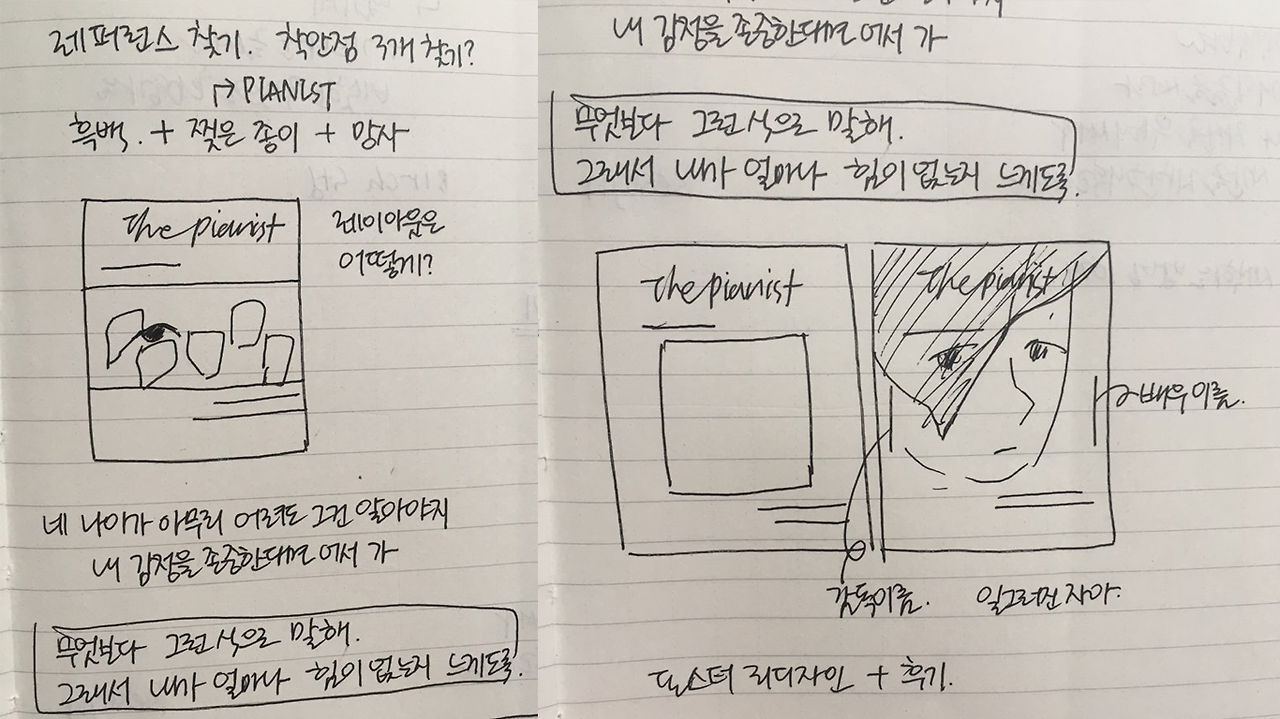 레퍼런스 찾기. 착안점 3개 찾기?
↱ PIANIST
흑백. + 찢은 종이 + 망사
the pianist
레이아웃은
어떻게?
네 나이가 아무리 어려도 그건 알아야지
내 감정을 존중한다면 어서 가
무엇보다 그런 식으로 말해.
그래서 내가 얼마나 힘이 없는지 느끼도록.
내 감정을 존중한다면 어서 가
무엇보다 그런 식으로 말해.
그래서 내가 얼마나 힘이 없는지 느끼도록.
the pianist
the pianist
배우이름.
감독이름.
일그러진 자아.
포스터 리디자인 + 후기.